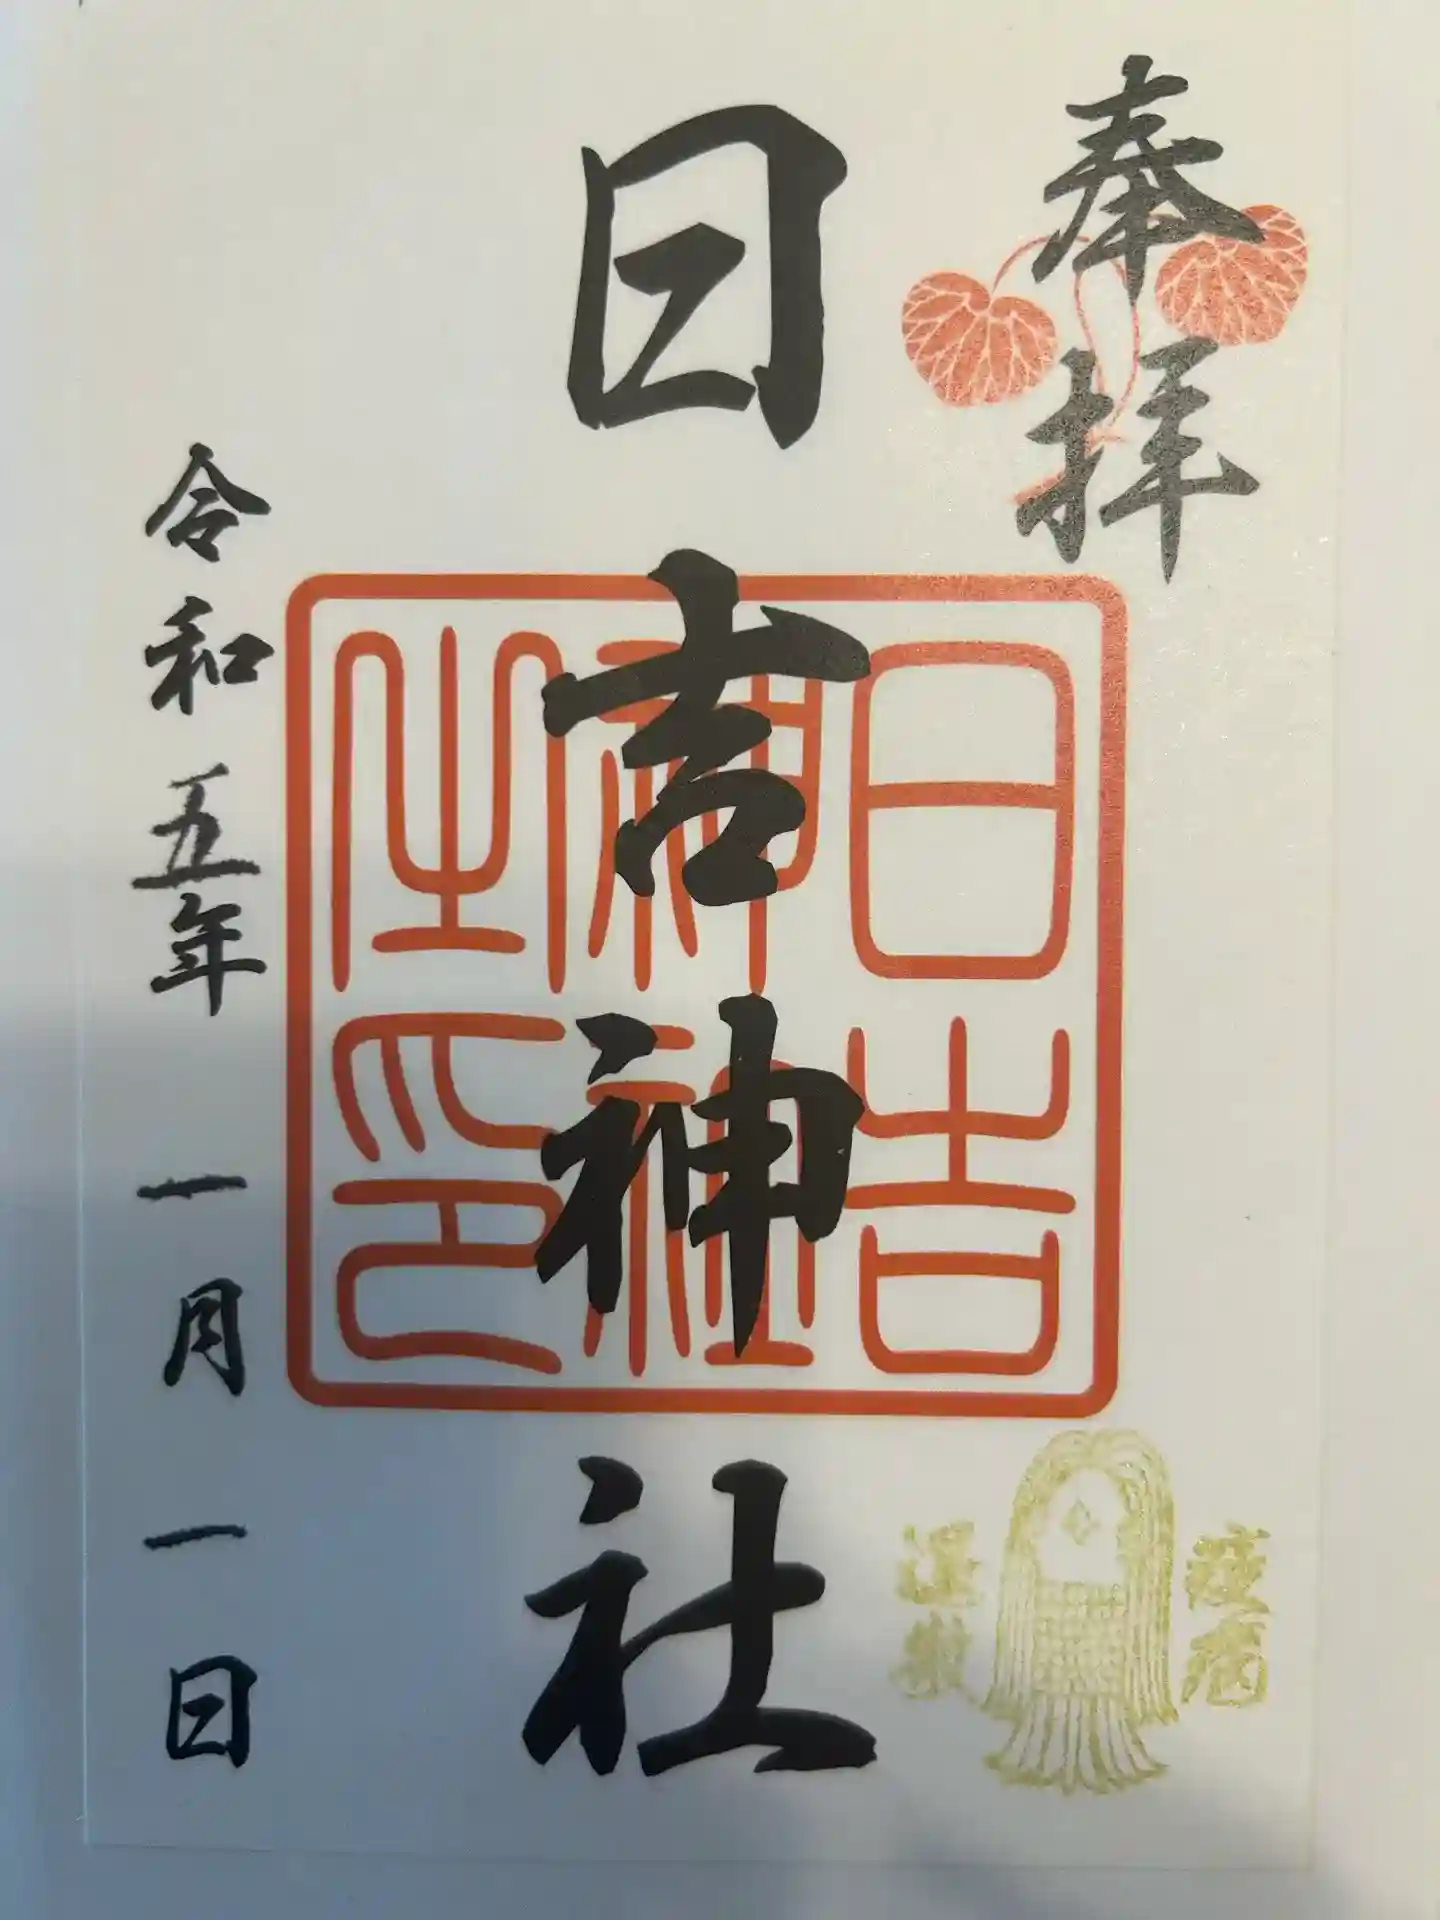 奉拝
日吉神社
日吉
神社
之印
令和五年一月一日
疫病
退散